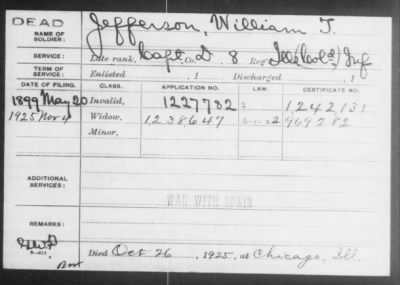 DEAD
NAME OF SOLDIER: Jefferson, William T.
SERVICE: Late rank, Capt. Co. D, 8 Reg't Ills Col'd Inf
TERM OF SERVICE: Enlisted , 1 Discharged , 1
DATE OF FILING. CLASS. APPLICATION NO. LAW. CERTIFICATE NO.
1899 May 20 Invalid, 1227782 S 1242131
1925 Nov 4 Widow, 1238647 969282
Minor,
ADDITIONAL SERVICES:
WAR WITH SPAIN
REMARKS:
Died Oct 26 , 1925, at Chicago, Ill.